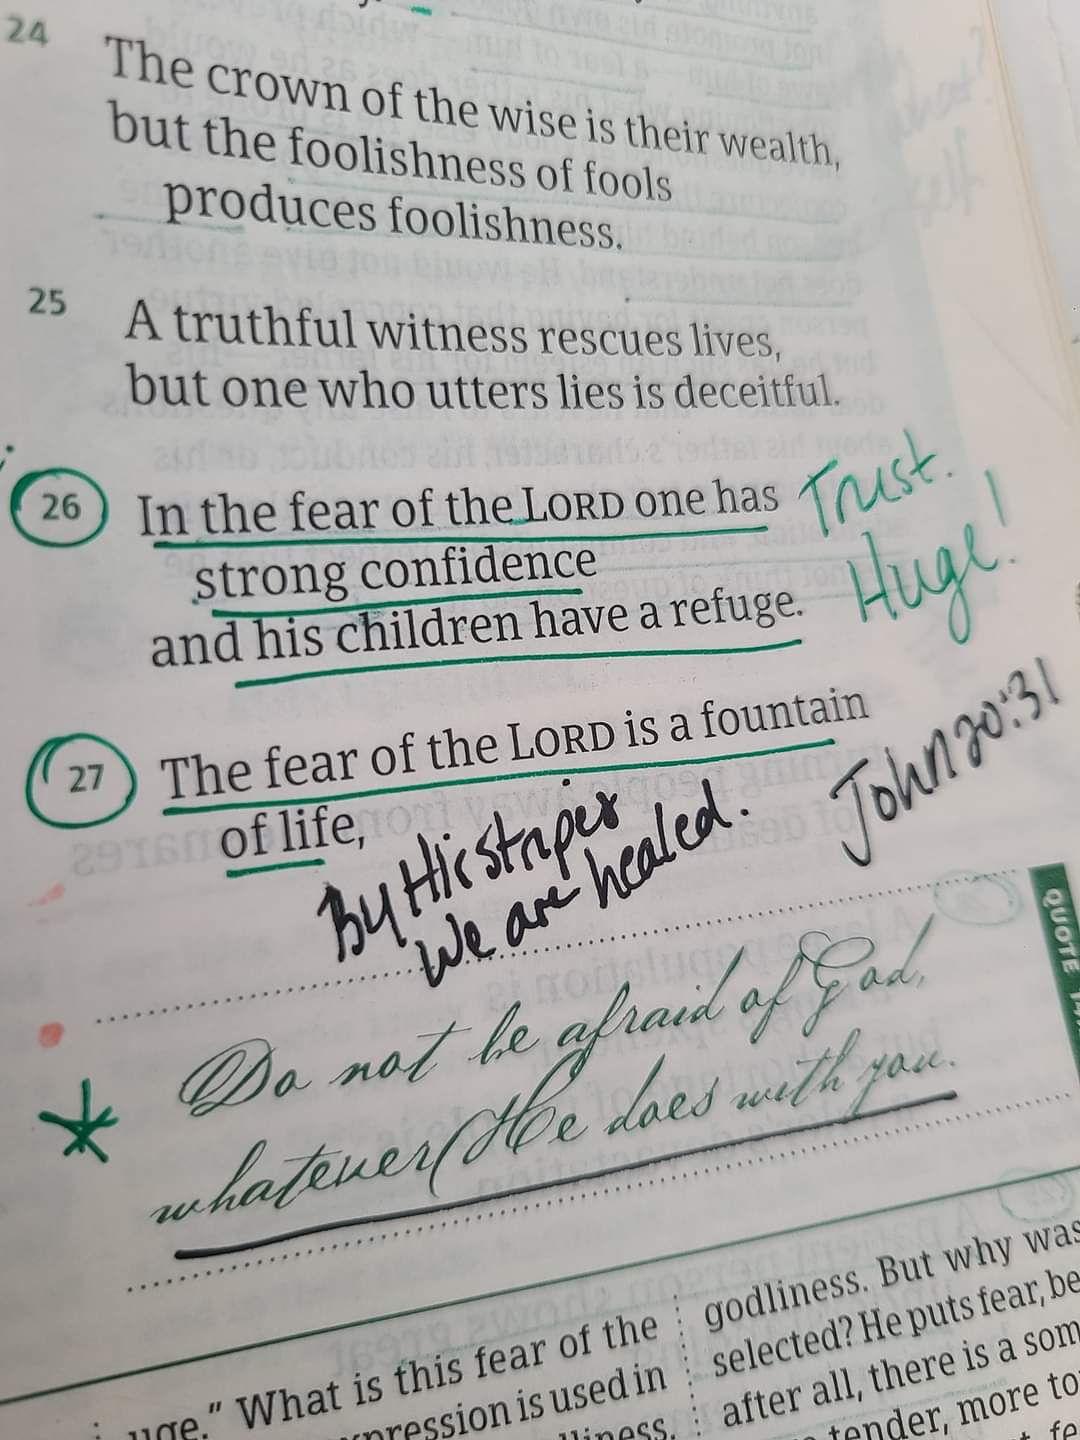 24
The crown of the wise is their wealth,
but the foolishness of fools
produces foolishness.
25
A truthful witness rescues lives,
but one who utters lies is deceitful.
26
In the fear of the LORD one has
Trust.
strong confidence
Huge!
and his children have a refuge.
27
The fear of the LORD is a fountain
of life,
By His stripes
We are healed.
John 20:31
QUOTE
Do not be afraid of God,
whatever He does with you.
uge." What is this fear of the
pression is used in
lliness.
godliness. But why was
selected? He puts fear, be
after all, there is a som
tender, more to